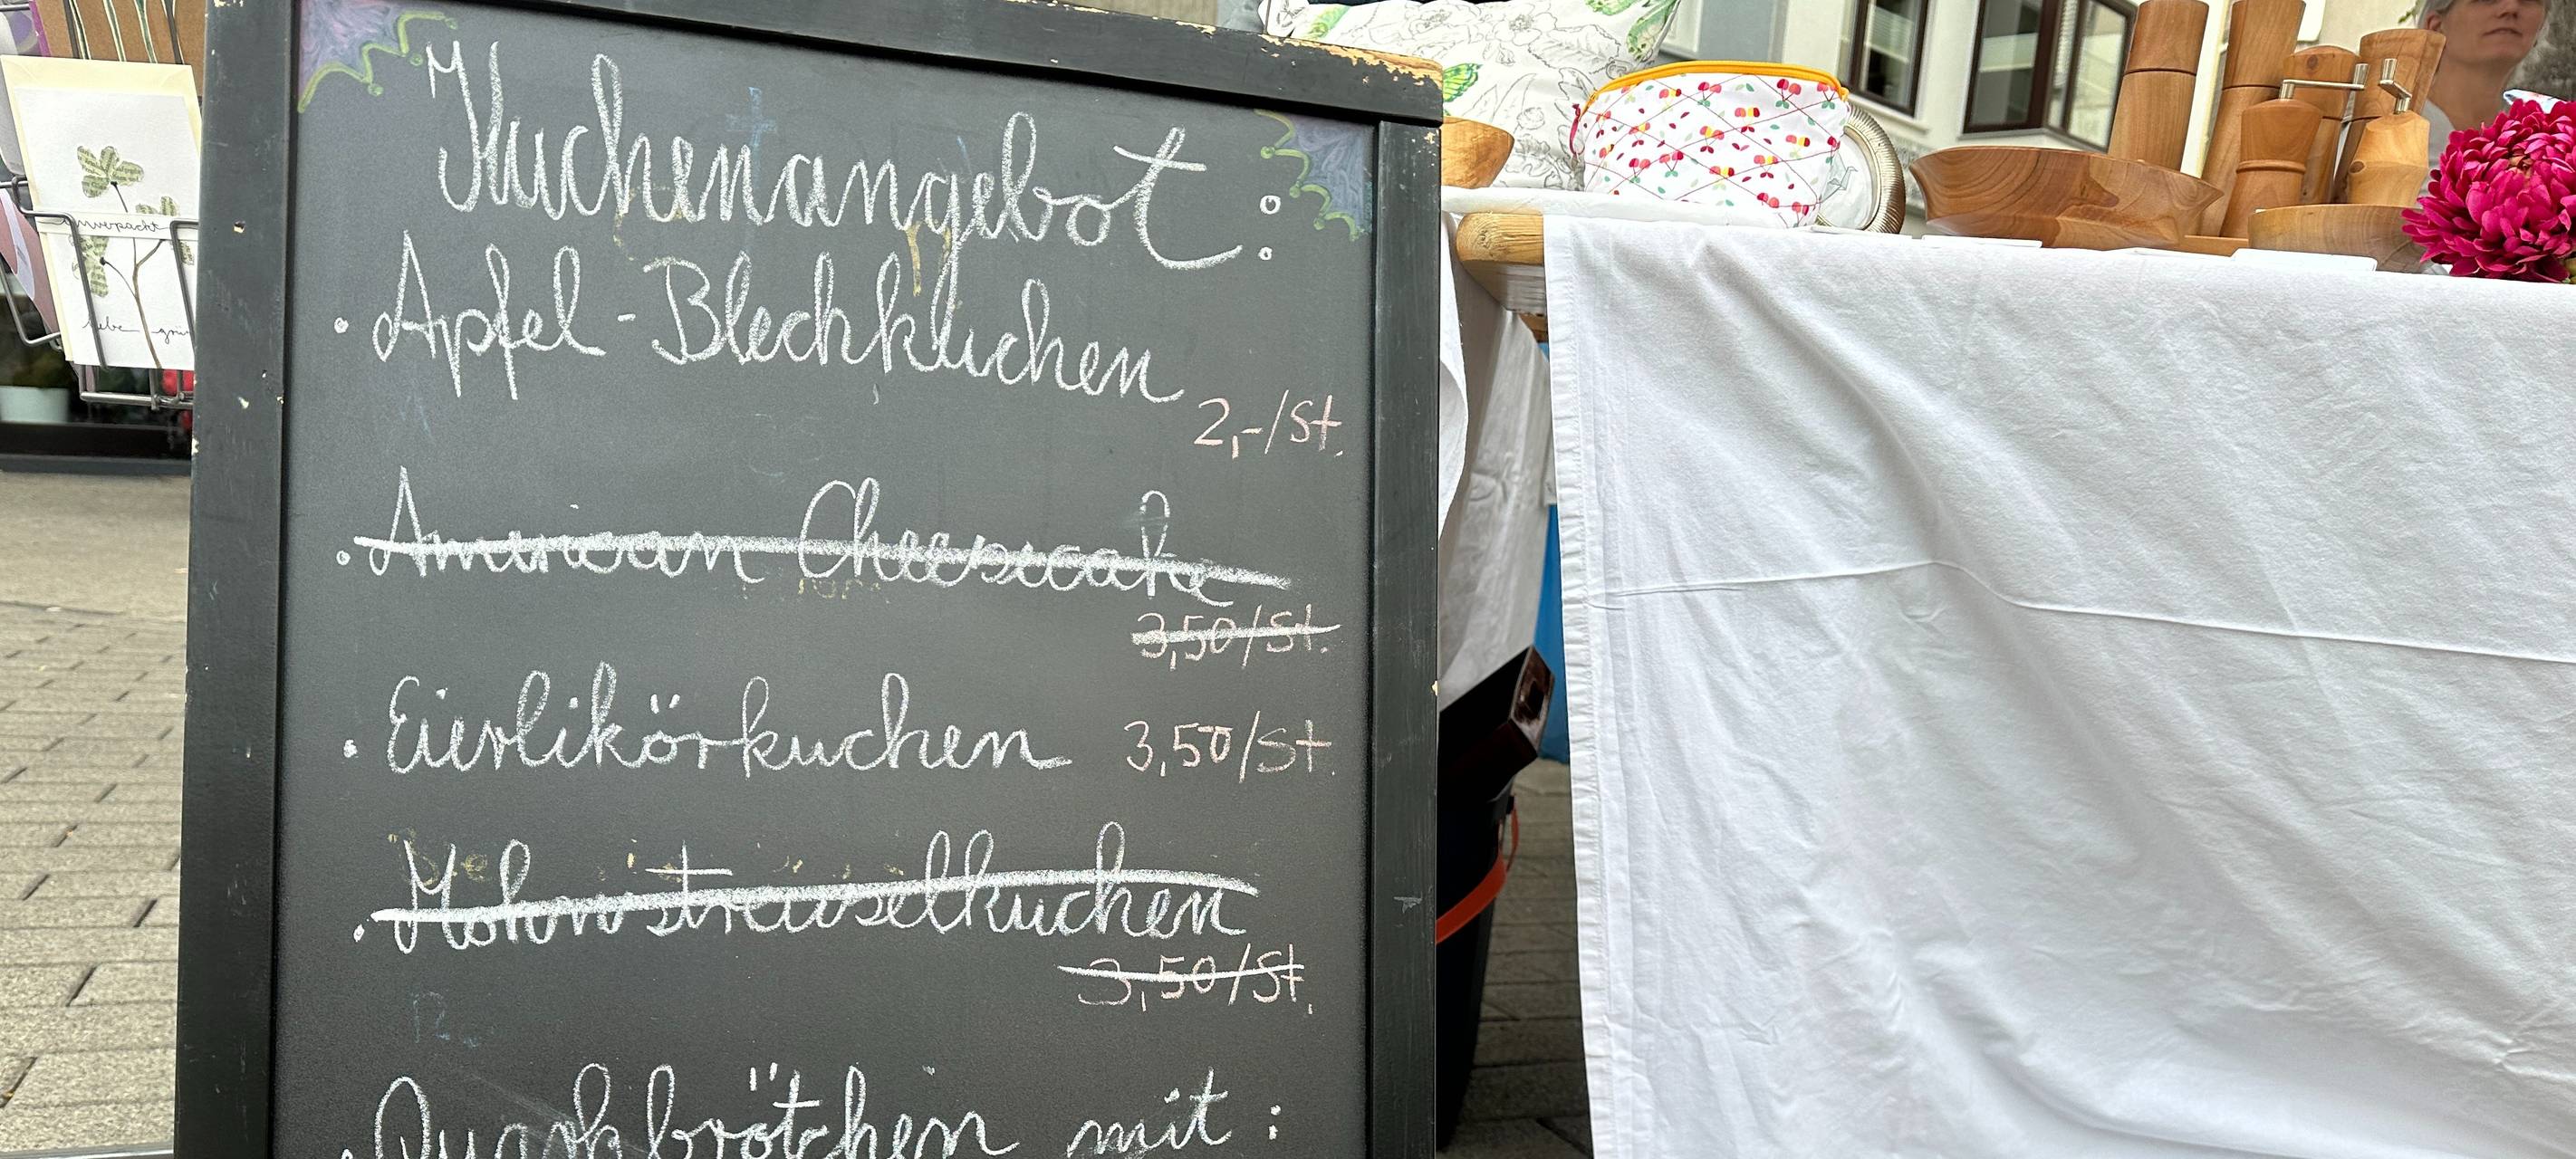 Kuchenangebot:
• Apfel-Blechkuchen
2,-/St.
• American Cheesecake
3,50/St.
• Eierlikörkuchen 3,50/St.
• Mohnstreuselkuchen
3,50/St.
• Quarkbrötchen mit: